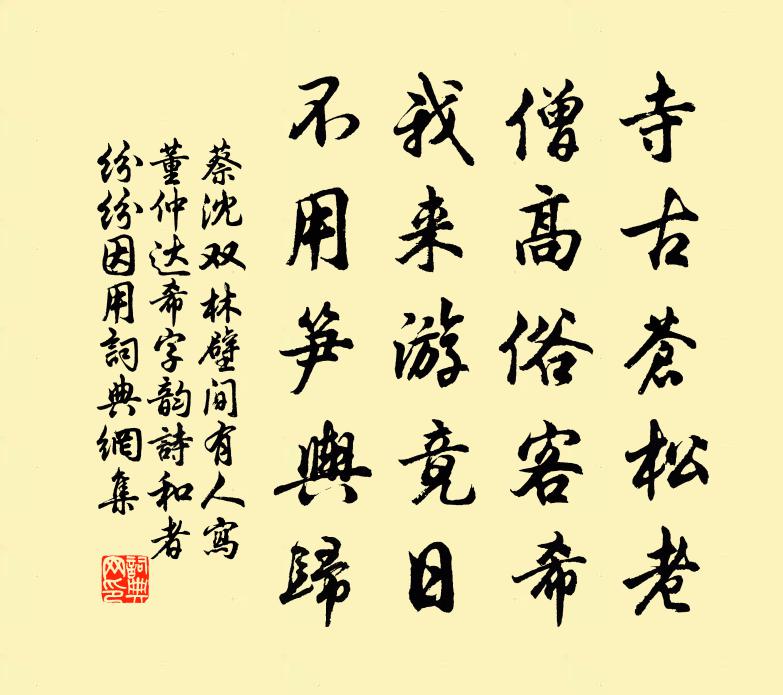 寺古蒼松老
僧高俗客希
我来游竟日
不用笋輿歸
蔡沈双林壁间有人寫
董仲达希字韵詩和者
纷纷因用詞典網集
詞典網印